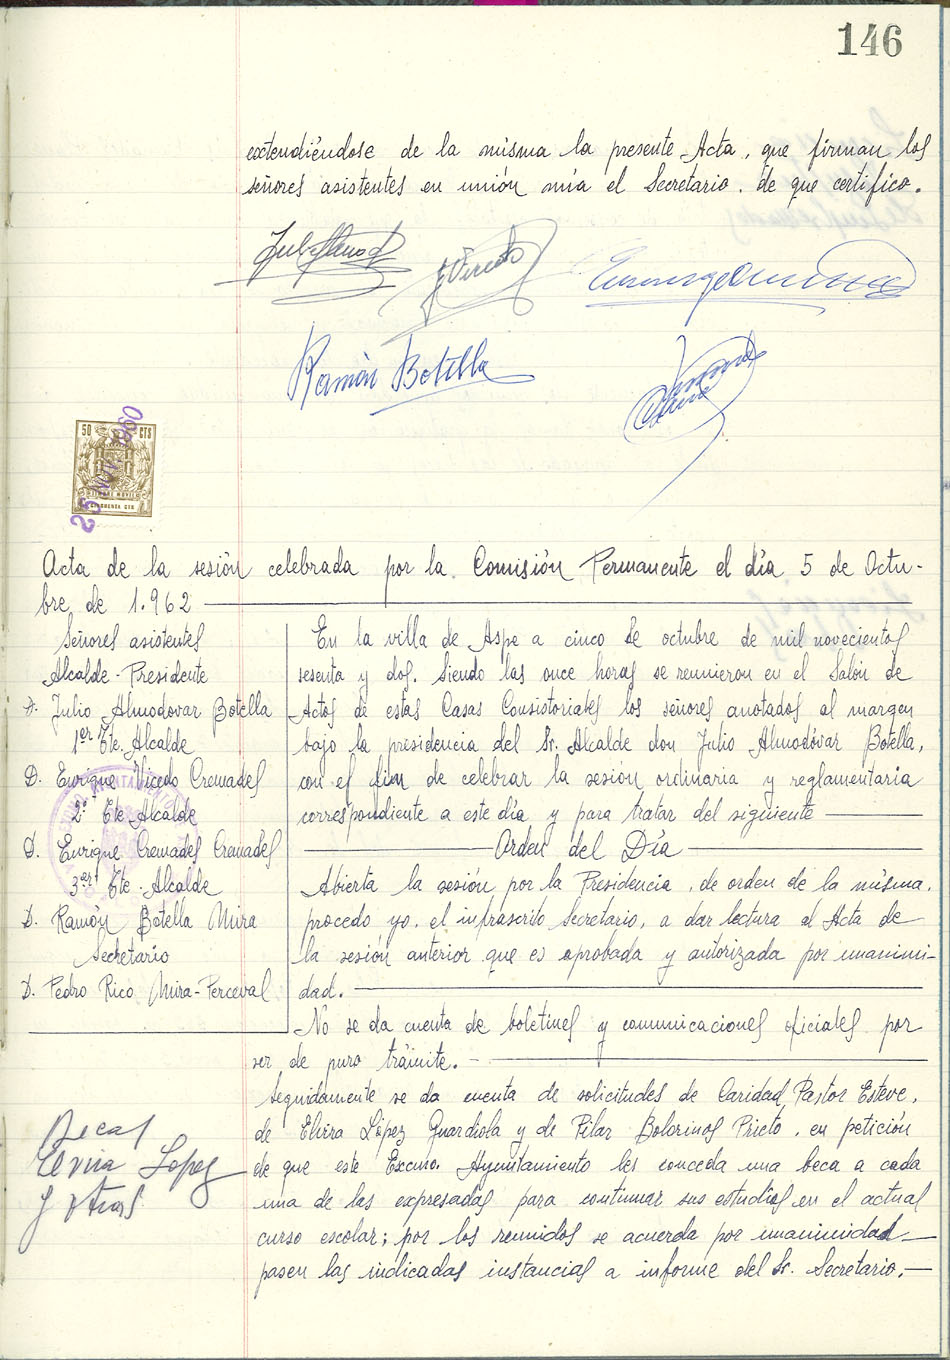 146
extendiéndose de la misma la presente Acta, que firman los
señores asistentes en unión mía el Secretario, de que certifico.
Ramón Botella
50 CTS
25 NOV. 1960
Acta de la sesión celebrada por la Comisión Permanente el día 5 de Octu-
bre de 1.962
Señores asistentes
Alcalde-Presidente
D. Julio Almodovar Botella
1er Tte. Alcalde
D. Enrique Vicedo Cremades
2º Tte Alcalde
D. Enrique Cremades Cremades
3er Tte. Alcalde
D. Ramón Botella Mira
Secretario
D. Pedro Rico Mira-Perceval
En la villa de Aspe a cinco de octubre de mil novecientos
sesenta y dos. Siendo las once horas se reunieron en el Salón de
Actos de estas Casas Consistoriales los señores anotados al margen
bajo la presidencia del Sr. Alcalde don Julio Almodóvar Botella,
con el fin de celebrar la sesión ordinaria y reglamentaria
correspondiente a este día y para tratar del siguiente
Orden del Día
Abierta la sesión por la Presidencia, de orden de la misma,
procedo yo, el infrascrito Secretario, a dar lectura al Acta de
la sesión anterior que es aprobada y autorizada por unanimi-
dad.
No se da cuenta de boletines y comunicaciones oficiales por
ser de puro trámite.
Seguidamente se da cuenta de solicitudes de Caridad Pastor Esteve,
de Elvira López Guardiola y de Pilar Bolorinos Prieto, en petición
de que este Excmo. Ayuntamiento les conceda una beca a cada
una de las expresadas para continuar sus estudios en el actual
curso escolar; por los reunidos se acuerda por unanimidad
pasen las indicadas instancias a informe del Sr. Secretario.
Becas
Elvira Lopez
y otras